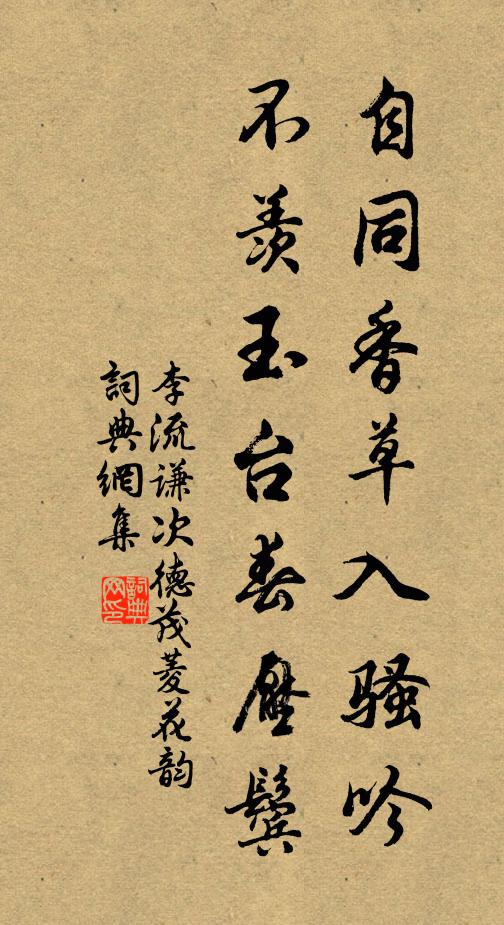 自同香草入骚吟
不羡玉台春压鬓
李流谦次德茂菱花韵
詞典網集
詞典網印